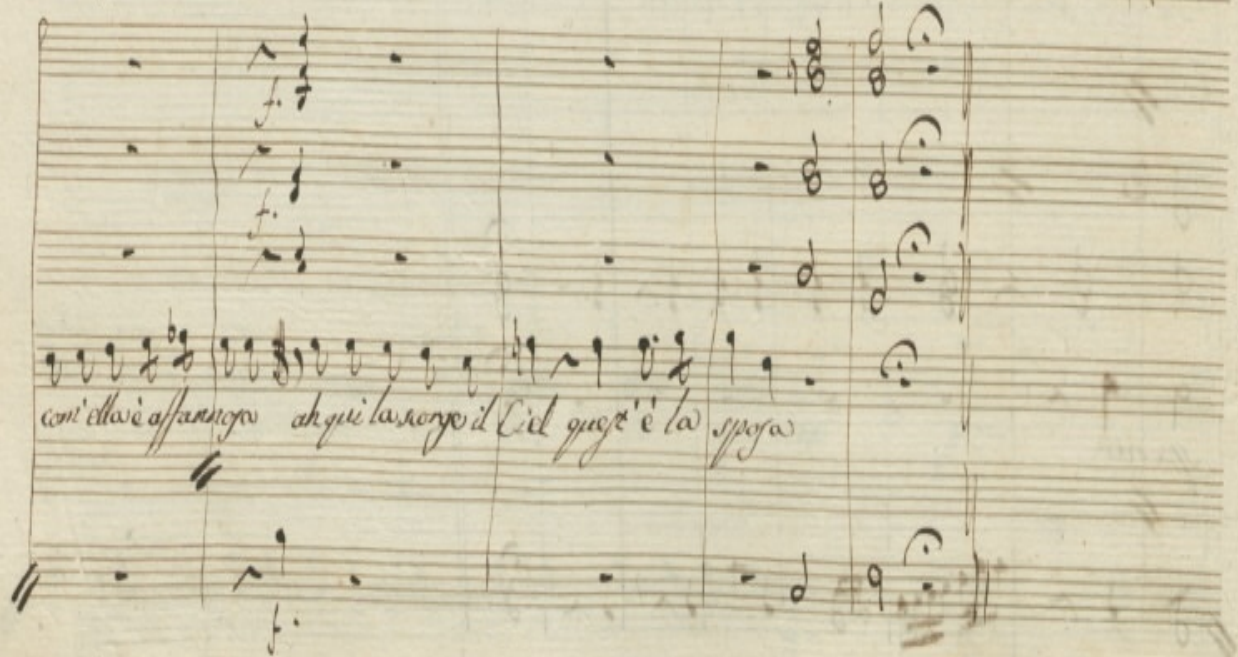 f.
f.
com' ella è affannosa ah qui la scorge il Ciel quest' è la sposa
f.